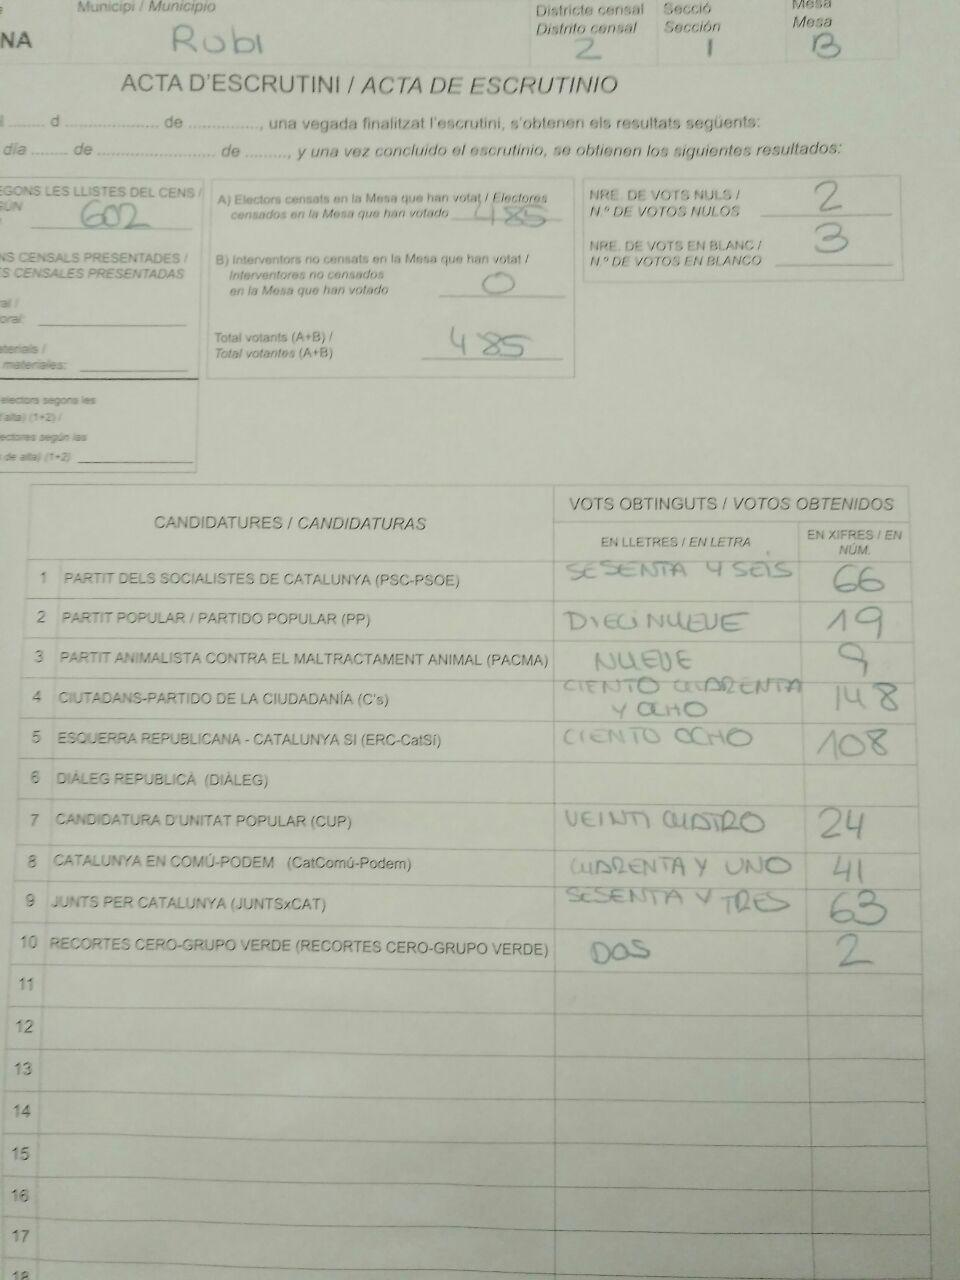 Municipi / Municipio
NA
Rubi
Districte censal
Distrito censal
2
Secció
Sección
1
Mesa
Mesa
B
ACTA D'ESCRUTINI / ACTA DE ESCRUTINIO
d de , una vegada finalitzat l'escrutini, s'obtenen els resultats següents:
día de de , y una vez concluido el escrutinio, se obtienen los siguientes resultados:
EGONS LES LLISTES DEL CENS /
GÚN
602
NS CENSALS PRESENTADES /
ES CENSALES PRESENTADAS
ral /
oral:
aterials /
materiales:
electors segons les
alta) (1+2) /
ectores según las
de alta) (1+2)
A) Electors censats en la Mesa que han votat / Electores
censados en la Mesa que han votado 485
B) Interventors no censats en la Mesa que han votat /
Interventores no censados
en la Mesa que han votado 0
Total votants (A+B) /
Total votantes (A+B) 485
NRE. DE VOTS NULS /
N.º DE VOTOS NULOS 2
NRE. DE VOTS EN BLANC /
N.º DE VOTOS EN BLANCO 3
CANDIDATURES / CANDIDATURAS
VOTS OBTINGUTS / VOTOS OBTENIDOS
EN LLETRES / EN LETRA
EN XIFRES / EN
NÚM.
1 PARTIT DELS SOCIALISTES DE CATALUNYA (PSC-PSOE) SESENTA Y SEIS 66
2 PARTIT POPULAR / PARTIDO POPULAR (PP) DIECINUEVE 19
3 PARTIT ANIMALISTA CONTRA EL MALTRACTAMENT ANIMAL (PACMA) NUEVE 9
4 CIUTADANS-PARTIDO DE LA CIUDADANÍA (C's) CIENTO CUARENTA
Y OCHO 148
5 ESQUERRA REPUBLICANA - CATALUNYA SI (ERC-CatSí) CIENTO OCHO 108
6 DIÀLEG REPUBLICÀ (DIÀLEG)
7 CANDIDATURA D'UNITAT POPULAR (CUP) VEINTI CUATRO 24
8 CATALUNYA EN COMÚ-PODEM (CatComú-Podem) CUARENTA Y UNO 41
9 JUNTS PER CATALUNYA (JUNTSxCAT) SESENTA Y TRES 63
10 RECORTES CERO-GRUPO VERDE (RECORTES CERO-GRUPO VERDE) DOS 2
11
12
13
14
15
16
17
18